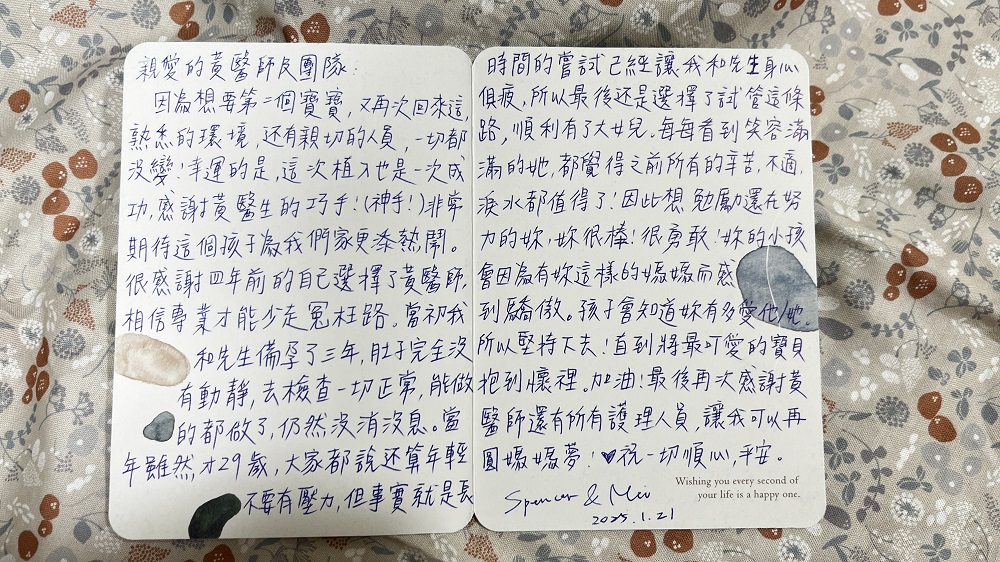 親愛的黃醫師及團隊:
因為想要第二個寶寶, 又再次回來這
熟悉的環境, 還有親切的人員, 一切都
沒變!幸運的是, 這次植入也是一次成
功, 感謝黃醫生的巧手!(神手!)非常
期待這個孩子為我們家更添熱鬧。
很感謝四年前的自己選擇了黃醫師,
相信專業才能少走冤枉路。當初我
和先生備孕了三年, 肚子完全沒
有動靜, 去檢查一切正常, 能做
的都做了, 仍然沒消沒息。當
年雖然才29歲, 大家都說还算年輕
不要有壓力, 但事實就是長
時間的嘗試已經讓我和先生身心
俱疲, 所以最後还是選擇了試管這條
路, 順利有了大女兒。每每看到笑容滿
滿的她, 都覺得之前所有的辛苦, 不適,
淚水都值得了!因此想勉勵還在努
力的妳, 妳很棒!很勇敢!妳的小孩
會因為有妳這樣的媽媽而感
到驕傲。孩子會知道妳有多愛他/她.
所以堅持下去!直到將最可愛的寶貝
抱到懷裡。加油!最後再次感謝黃
醫師還有所有護理人員, 讓我可以再
圓媽媽夢!♥祝一切順心, 平安。
Wishing you every second of
your life is a happy one.
Spencer & Mio
2025.1.21